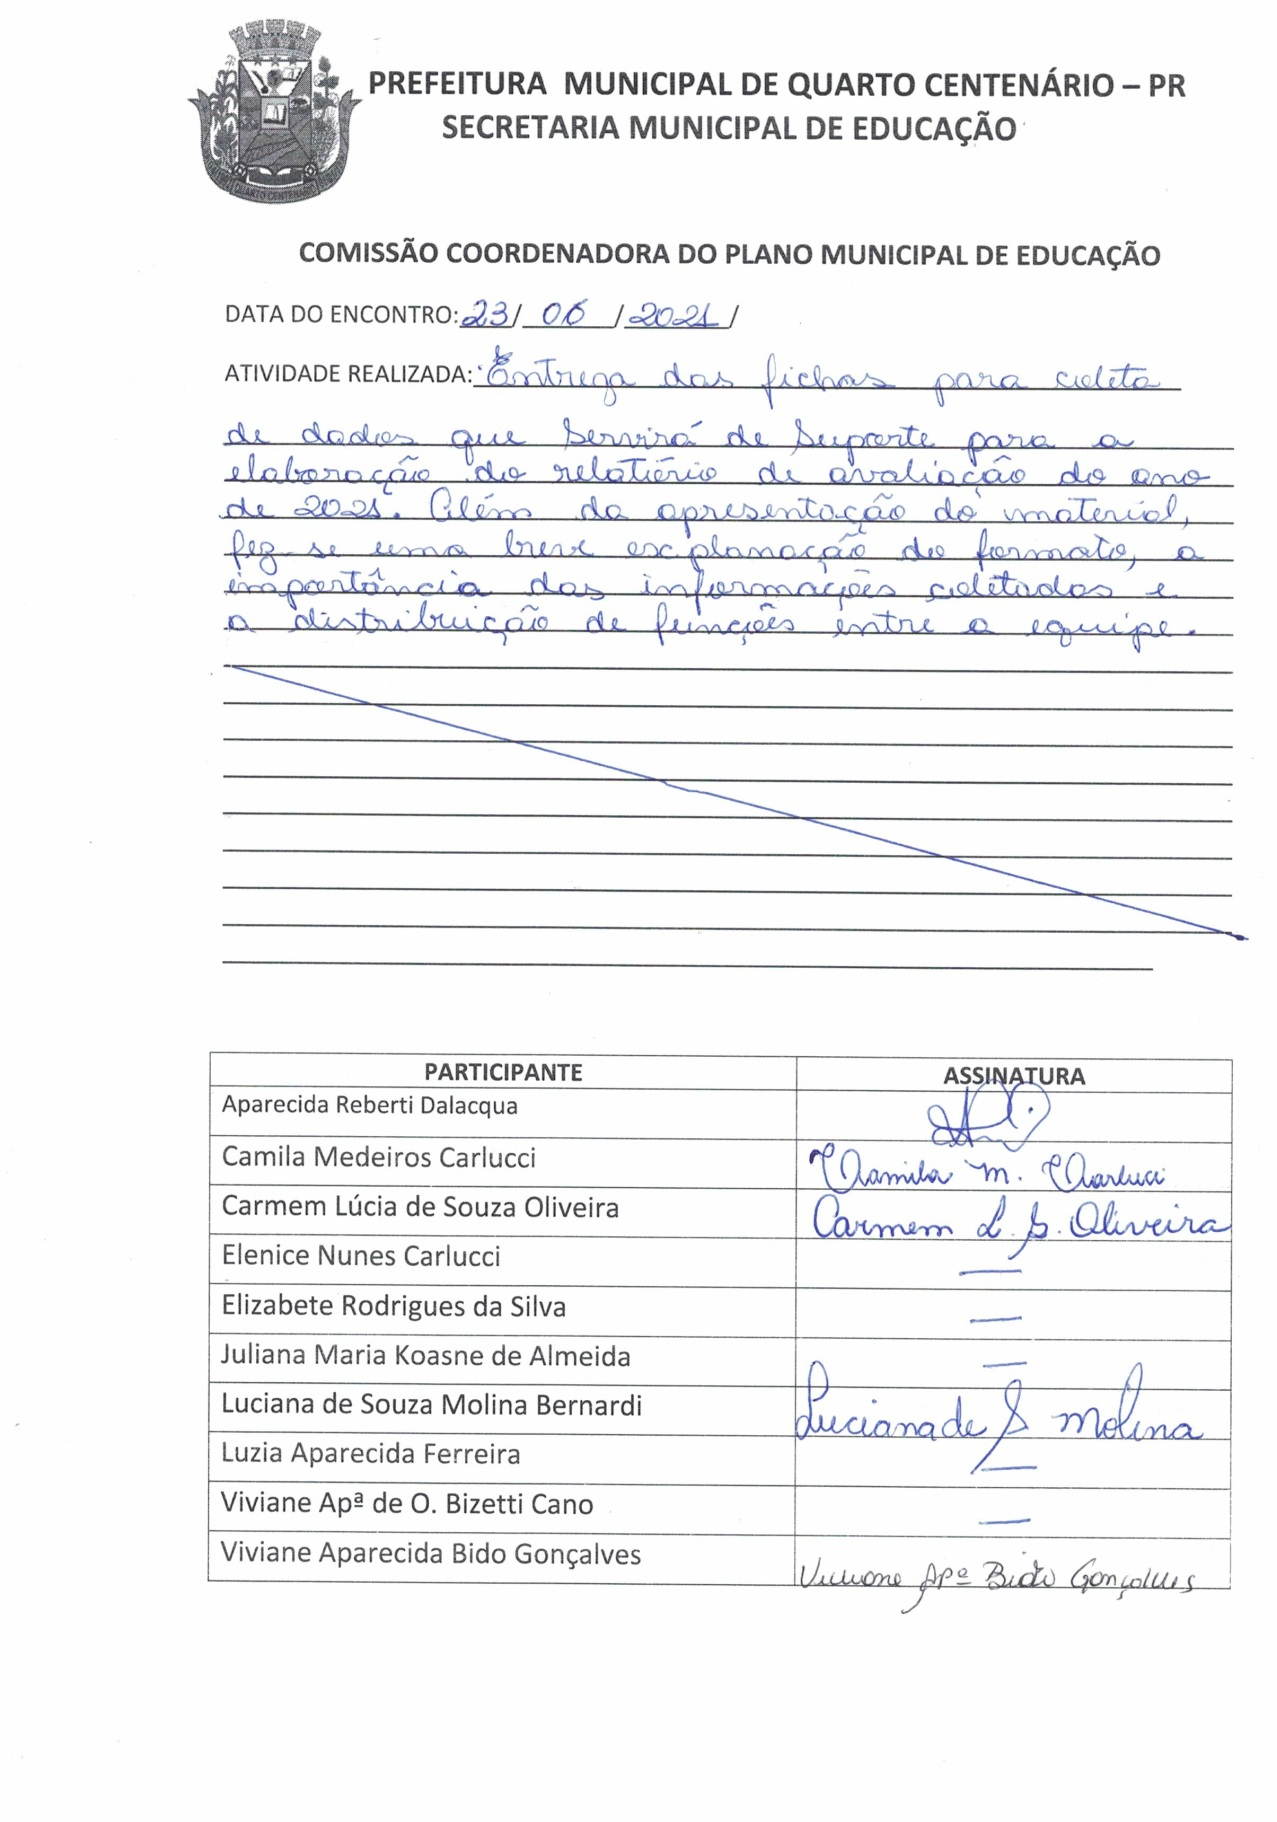 QUARTO CENTENÁRIO
PREFEITURA MUNICIPAL DE QUARTO CENTENÁRIO – PR
SECRETARIA MUNICIPAL DE EDUCAÇÃO
COMISSÃO COORDENADORA DO PLANO MUNICIPAL DE EDUCAÇÃO
DATA DO ENCONTRO: 23/ 06 /2021/
ATIVIDADE REALIZADA: Entrega das fichas para coleta
de dados que servirá de suporte para a
elaboração do relatório de avaliação do ano
de 2021. Além da apresentação do material,
fez-se uma breve explanação do formato, a
importância das informações coletadas e
a distribuição de funções entre a equipe.
PARTICIPANTE ASSINATURA
Aparecida Reberti Dalacqua
Camila Medeiros Carlucci Camila M. Carlucci
Carmem Lúcia de Souza Oliveira Carmem L. S. Oliveira
Elenice Nunes Carlucci —
Elizabete Rodrigues da Silva —
Juliana Maria Koasne de Almeida —
Luciana de Souza Molina Bernardi Luciana de S Molina
Luzia Aparecida Ferreira —
Viviane Apª de O. Bizetti Cano —
Viviane Aparecida Bido Gonçalves Viviane Apª Bido Gonçalves